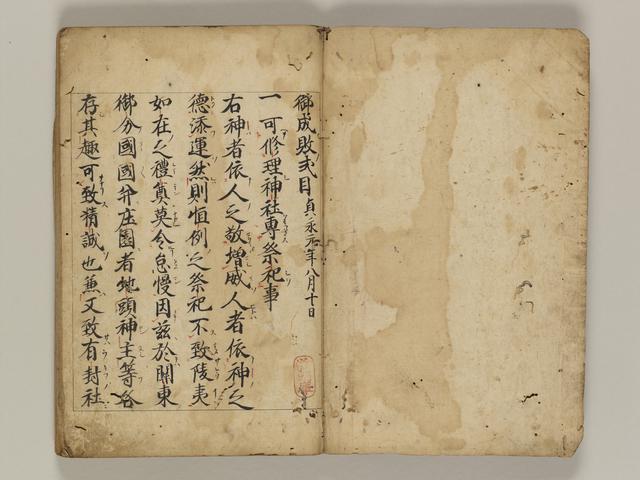 御成敗式目貞永元年八月十日
一可修理神社専祭祀事
右神者依人之敬増威人者依神之
徳添運然則恒例之祭祀不致陵夷
如在之禮奠莫令怠慢因茲於関東
御分國國并庄園者地頭神主等各
存其趣可致精誠也兼又致有封社